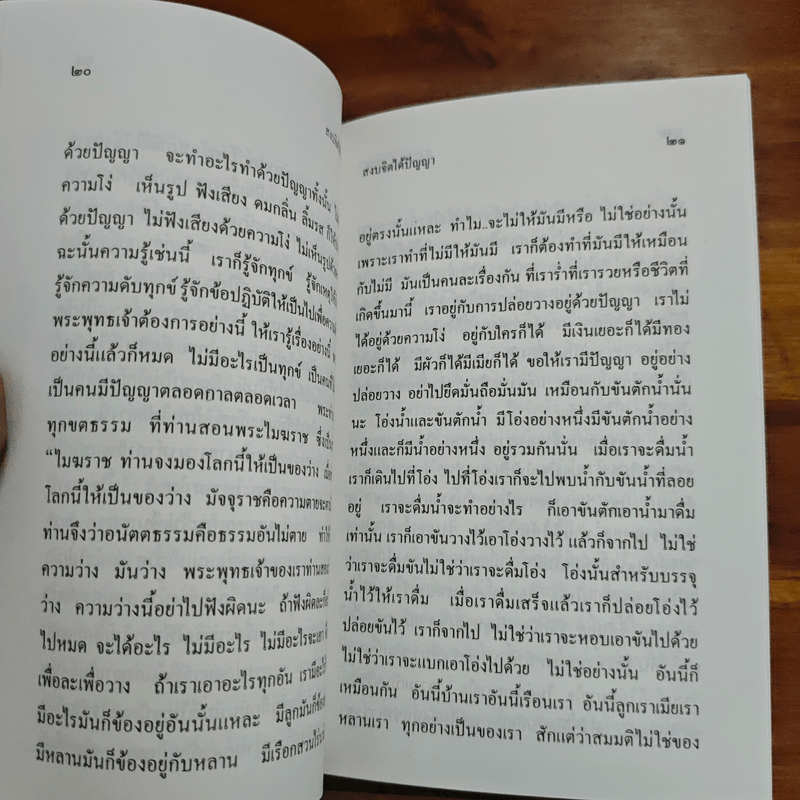 ๒๐
ด้วยปัญญา จะทำอะไรทำด้วยปัญญาทั้งนั้น
ความโง่ เห็นรูป ฟังเสียง ดมกลิ่น ลิ้มรส
ด้วยปัญญา ไม่ฟังเสียงด้วยความโง่ ไม่เห็นรูป
ฉะนั้นความรู้เช่นนี้ เราก็รู้จักทุกข์
รู้จักความดับทุกข์ รู้จักข้อปฏิบัติให้เป็นไปเพื่อความ
พระพุทธเจ้าต้องการอย่างนี้ ให้เรารู้เรื่องอย่างนี้
อย่างนี้แล้วก็หมด ไม่มีอะไรเป็นทุกข์
เป็นคนมีปัญญาตลอดกาลตลอดเวลา
ทุกขตธรรม ที่ท่านสอนพระไมฆราช
“ไมฆราช ท่านจงมองโลกนี้ให้เป็นของว่าง
โลกนี้ให้เป็นของว่าง มัจจุราชคือความตาย
ท่านจึงว่าอนัตตธรรมคือธรรมอันไม่ตาย
ความว่าง มันว่าง พระพุทธเจ้าของเราท่าน
ว่าง ความว่างนี้อย่าไปฟังผิดนะ ถ้าฟังผิด
ไปหมด จะได้อะไร ไม่มีอะไร
เพื่อละเพื่อวาง ถ้าเราเอาอะไรทุกอัน
มีอะไรมันก็ข้องอยู่อันนั้นแหละ
มีหลานมันก็ข้องอยู่กับหลาน
สงบจิตได้ปัญญา ๒๑
อยู่ตรงนั้นแหละ ทำไม..จะไม่ให้มันมีหรือ ไม่ใช่อย่างนั้น
เพราะเราทำที่ไม่มีให้มันมี เราก็ต้องทำที่มันมีให้เหมือน
กับไม่มี มันเป็นคนละเรื่องกัน ที่เราร่ำที่เรารวยหรือชีวิตที่
เกิดขึ้นมานี้ เราอยู่กับการปล่อยวางอยู่ด้วยปัญญา เราไม่
ได้อยู่ด้วยความโง่ อยู่กับใครก็ได้ มีเงินเยอะก็ได้มีทอง
เยอะก็ได้ มีผัวก็ได้มีเมียก็ได้ ขอให้เรามีปัญญา อยู่อย่าง
ปล่อยวาง อย่าไปยึดมั่นถือมั่นมัน เหมือนกับขันตักน้ำนั่น
นะ โอ่งน้ำและขันตักน้ำ มีโอ่งอย่างหนึ่งมีขันตักน้ำอย่าง
หนึ่งและก็มีน้ำอย่างหนึ่ง อยู่รวมกันนั่น เมื่อเราจะดื่มน้ำ
เราก็เดินไปที่โอ่ง ไปที่โอ่งเราก็จะไปพบน้ำกับขันน้ำที่ลอย
อยู่ เราจะดื่มน้ำจะทำอย่างไร ก็เอาขันตักเอาน้ำมาดื่ม
เท่านั้น เราก็เอาขันวางไว้เอาโอ่งวางไว้ แล้วก็จากไป ไม่ใช่
ว่าเราจะดื่มขันไม่ใช่ว่าเราจะดื่มโอ่ง โอ่งนั้นสำหรับบรรจุ
น้ำไว้ให้เราดื่ม เมื่อเราดื่มเสร็จแล้วเราก็ปล่อยโอ่งไว้
ปล่อยขันไว้ เราก็จากไป ไม่ใช่ว่าเราจะหอบเอาขันไปด้วย
ไม่ใช่ว่าเราจะแบกเอาโอ่งไปด้วย ไม่ใช่อย่างนั้น อันนี้ก็
เหมือนกัน อันนี้บ้านเราอันนี้เรือนเรา อันนี้ลูกเราเมียเรา
หลานเรา ทุกอย่างเป็นของเรา สักแต่ว่าสมมติไม่ใช่ของ